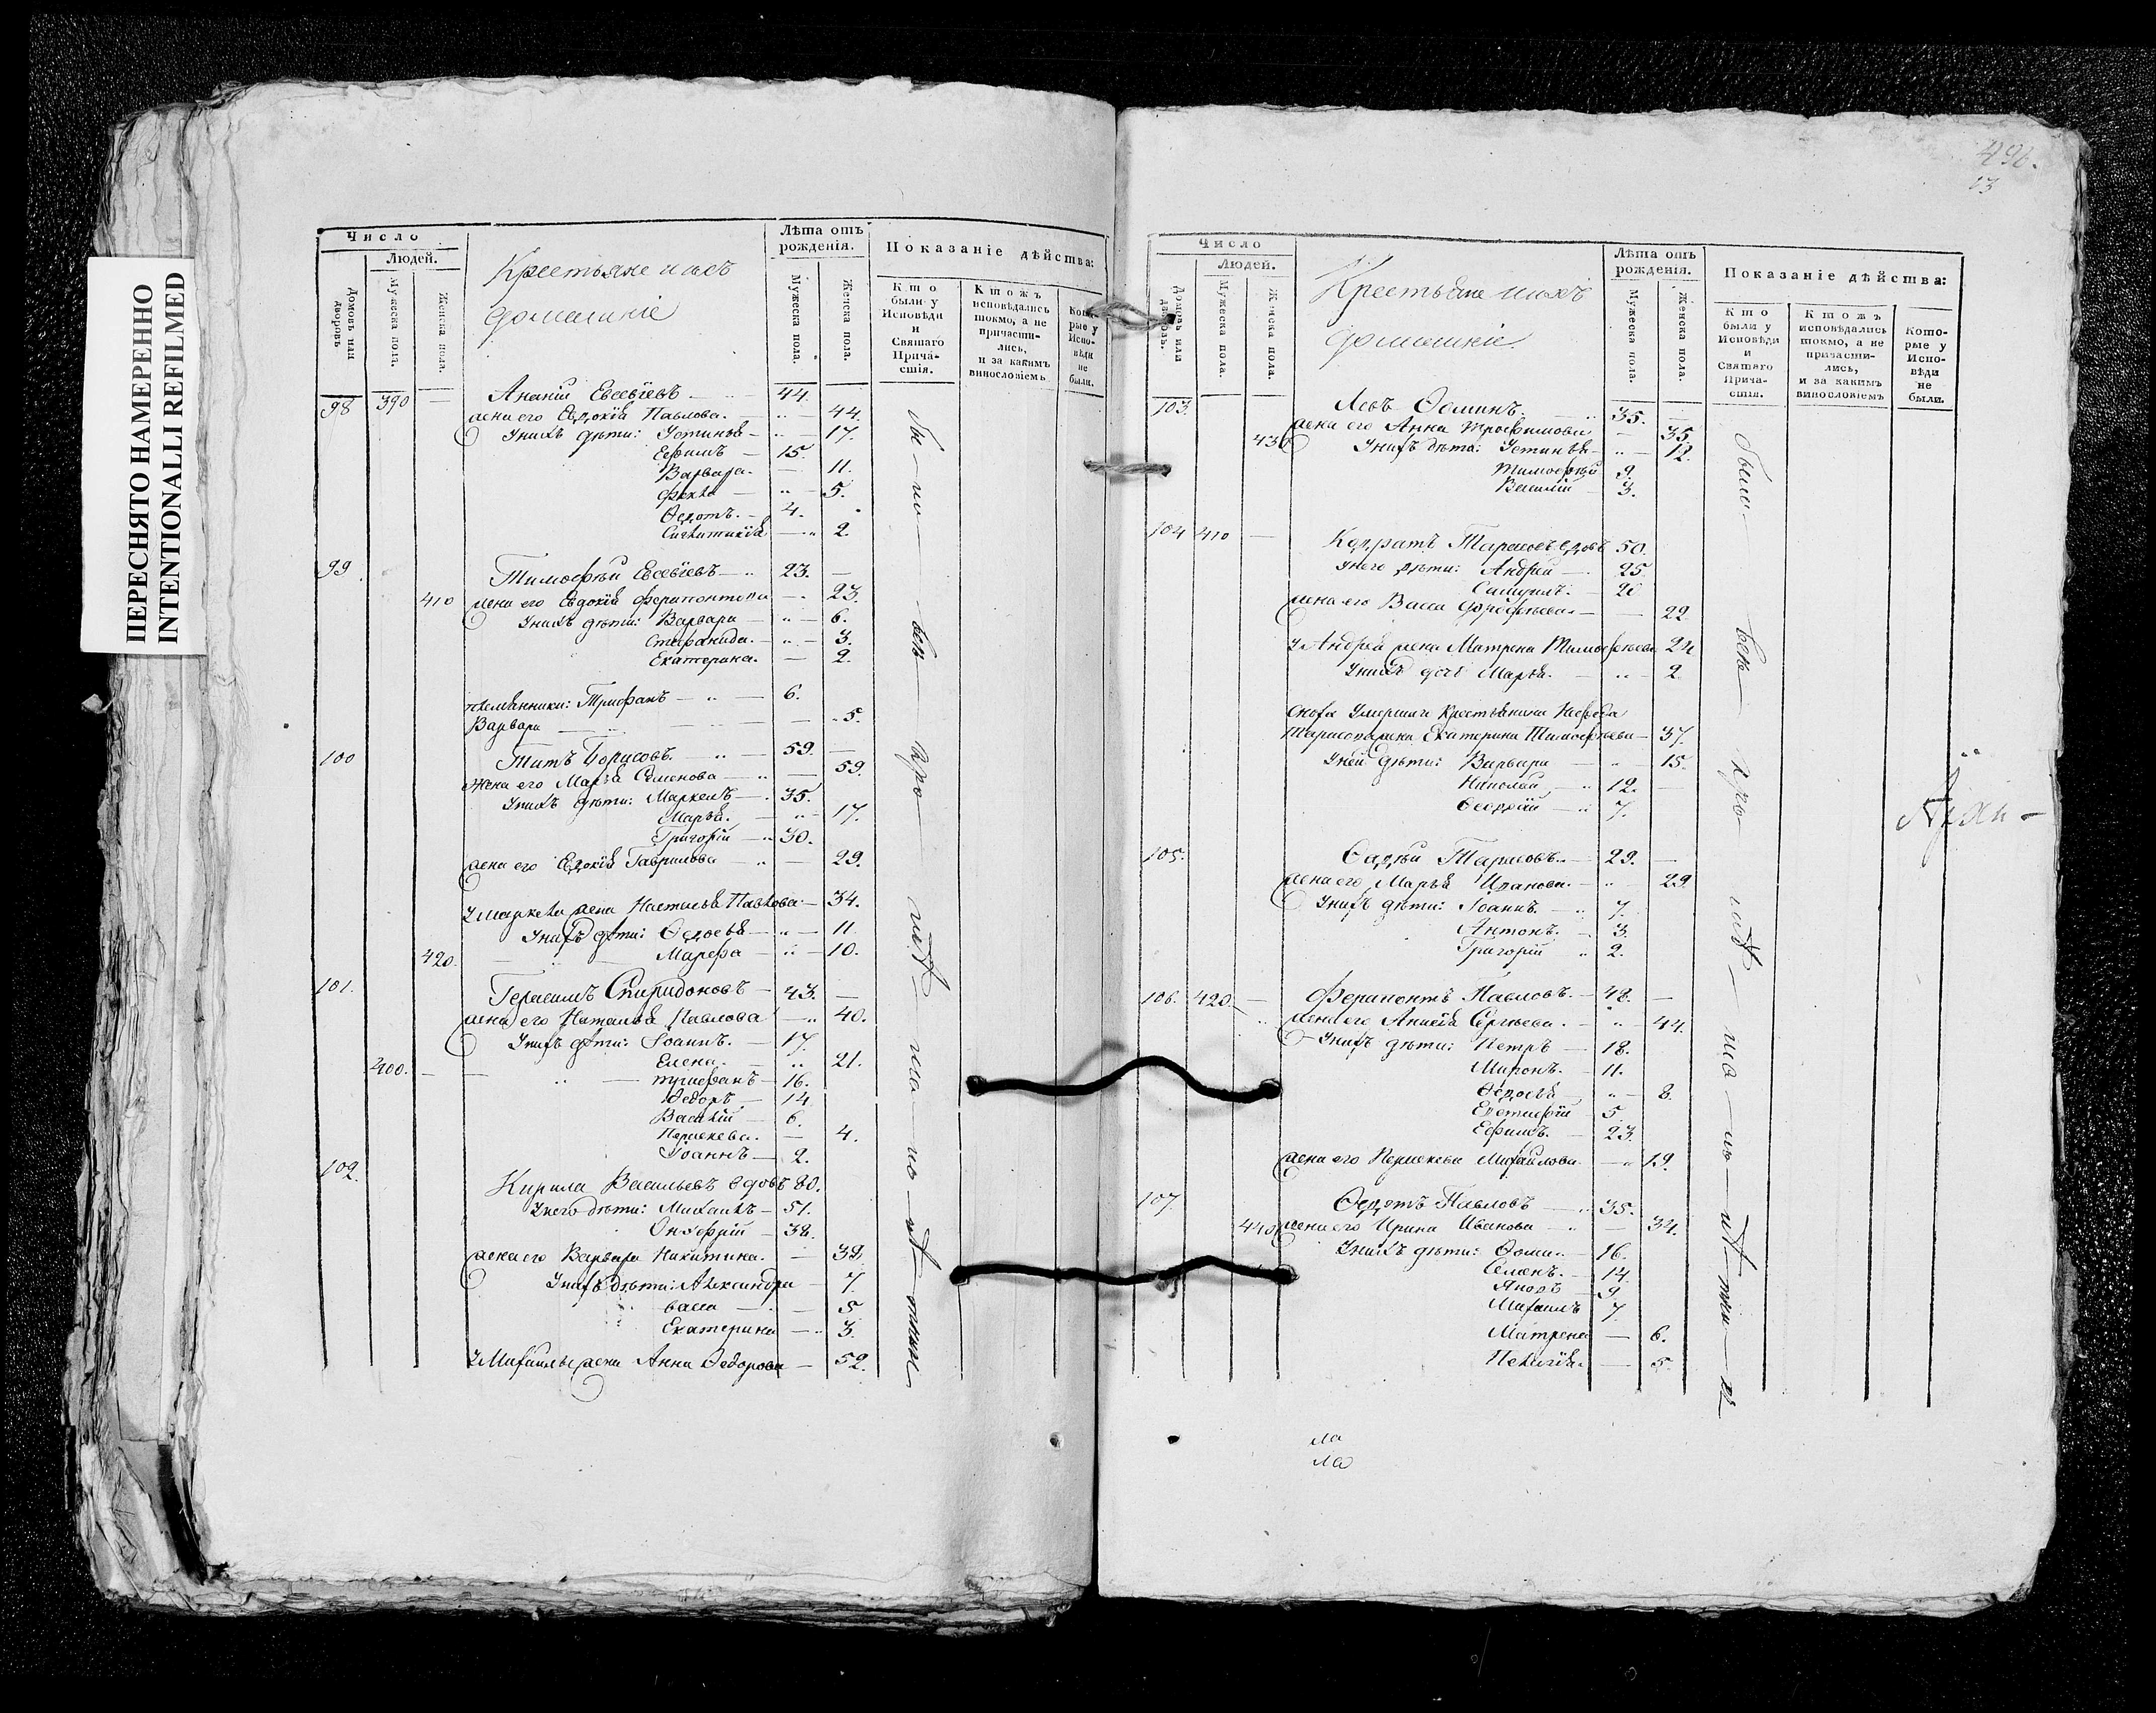 ПЕРЕСНЯТО НАМЕРЕННО
INTENTIONALLI REFILMED
Число
Людей.
Домовъ или дворовъ
Мужеска пола.
Женска пола.
Крестьяне и ихъ
домашніе
Лѣта отъ рожденія.
Мужеска пола.
Женска пола.
Показаніе дѣйства:
Кто были у Исповѣди и Святаго Причастія.
Ктожъ исповѣдались токмо, а не причастились, и за какимъ винословіемъ
Которые у Исповѣди не были.
98 390 — Ананій Евсевіевъ 44.
жена его Евдокія Павлова — 44.
У нихъ дѣти: Устинья — 17.
Ефимъ — 15.
Варвара — 11.
Фекла — 5.
Ѳедотъ. — 4.
— 2.
99 Тимоѳѣй Евсевіевъ — 23. —
410 жена его Евдокія Ферапонтова — 23.
У нихъ дѣти: Варвара — 6.
Стефанида. — 3.
Екатерина. — 2.
племянники: Трифанъ — 6.
Варвара — 5.
100 Титъ Борисовъ. — 59. —
Жена его Марья Семенова — 59.
У нихъ дѣти: Маркелъ — 35.
Марья. — 17.
Григорій — 30.
жена его Евдокія Гаврилова — 29.
У Маркела жена Наталья Павлова — 34.
У нихъ дѣти: Ѳедосья — 11.
420. Марфа — 10.
101. Герасимъ Спиридоновъ — 43. —
жена его Наталья Павлова — 40.
У нихъ дѣти: Іоаннъ. — 17.
Елена. — 21.
400. — трифанъ — 16.
Ѳедоръ — 14.
Василій — 6.
Параскева. — 4.
Іоаннъ — 2.
102. Кирила Васильевъ вдовъ 80.
У него дѣти: Михаилъ — 51.
Онуфрій — 38.
жена его Варвара Никитина. — 38.
У нихъ дѣти: Александра — 7.
васса — 5
Екатерина — 3.
У Михаилы жена Анна Ѳедорова — 52.
496.
13
Число
Людей.
Домовъ или дворовъ.
Мужеска пола.
Женска пола.
Крестьяне и ихъ
домашніе
Лѣта отъ рожденія.
Мужеска пола.
Женска пола.
Показаніе дѣйства:
Кто были у Исповѣди и Святаго Причастія.
Ктожъ исповѣдались токмо, а не причастились, и за какимъ винословіемъ
Которые у Исповѣди не были.
103. Левъ Ѳоминъ. 35. —
жена его Анна Трофимова — 35.
430 У нихъ дѣти: Устинья — 12.
Тимоѳѣй 9.
Василій — 3.
104 410 — Кодратъ Тарасовъ вдовъ 50.
У него дѣти: Андрей — 25.
Самуилъ. — 20
жена его Васса — 22
У Андрея жена Матрена Тимоѳѣева 24
У нихъ дочь Марья. — 2.
Сноха умершаго Крестьянина
Тарасова жена Екатерина Тимоѳѣева — 37.
У ней дѣти: Варвара — 15.
Николай — 12. —
Георгій — 7.
105. Ѳадѣй Тарасовъ. — 29. —
жена его Марья Иванова. — 29.
У нихъ дѣти: Іоаннъ. — 7.
Антонъ. — 3.
Григорій 2.
106. 420. — Ферапонтъ Павловъ. — 48. —
жена его Анисія Сергѣева. — 44.
У нихъ дѣти: Петръ — 18.
Миронъ. — 11.
Ѳедосья — 8.
5
Ефимъ. — 23.
жена его Параскева Михайлова — 19.
107. Ѳедотъ Павловъ — 35.
440 жена его Ирина Иванова — 34.
У нихъ дѣти: Ѳома. — 16.
Семенъ. — 14.
9
Михаилъ 7.
Матрена — 6.
Пелагія — 5.
Архи-
ла
ла